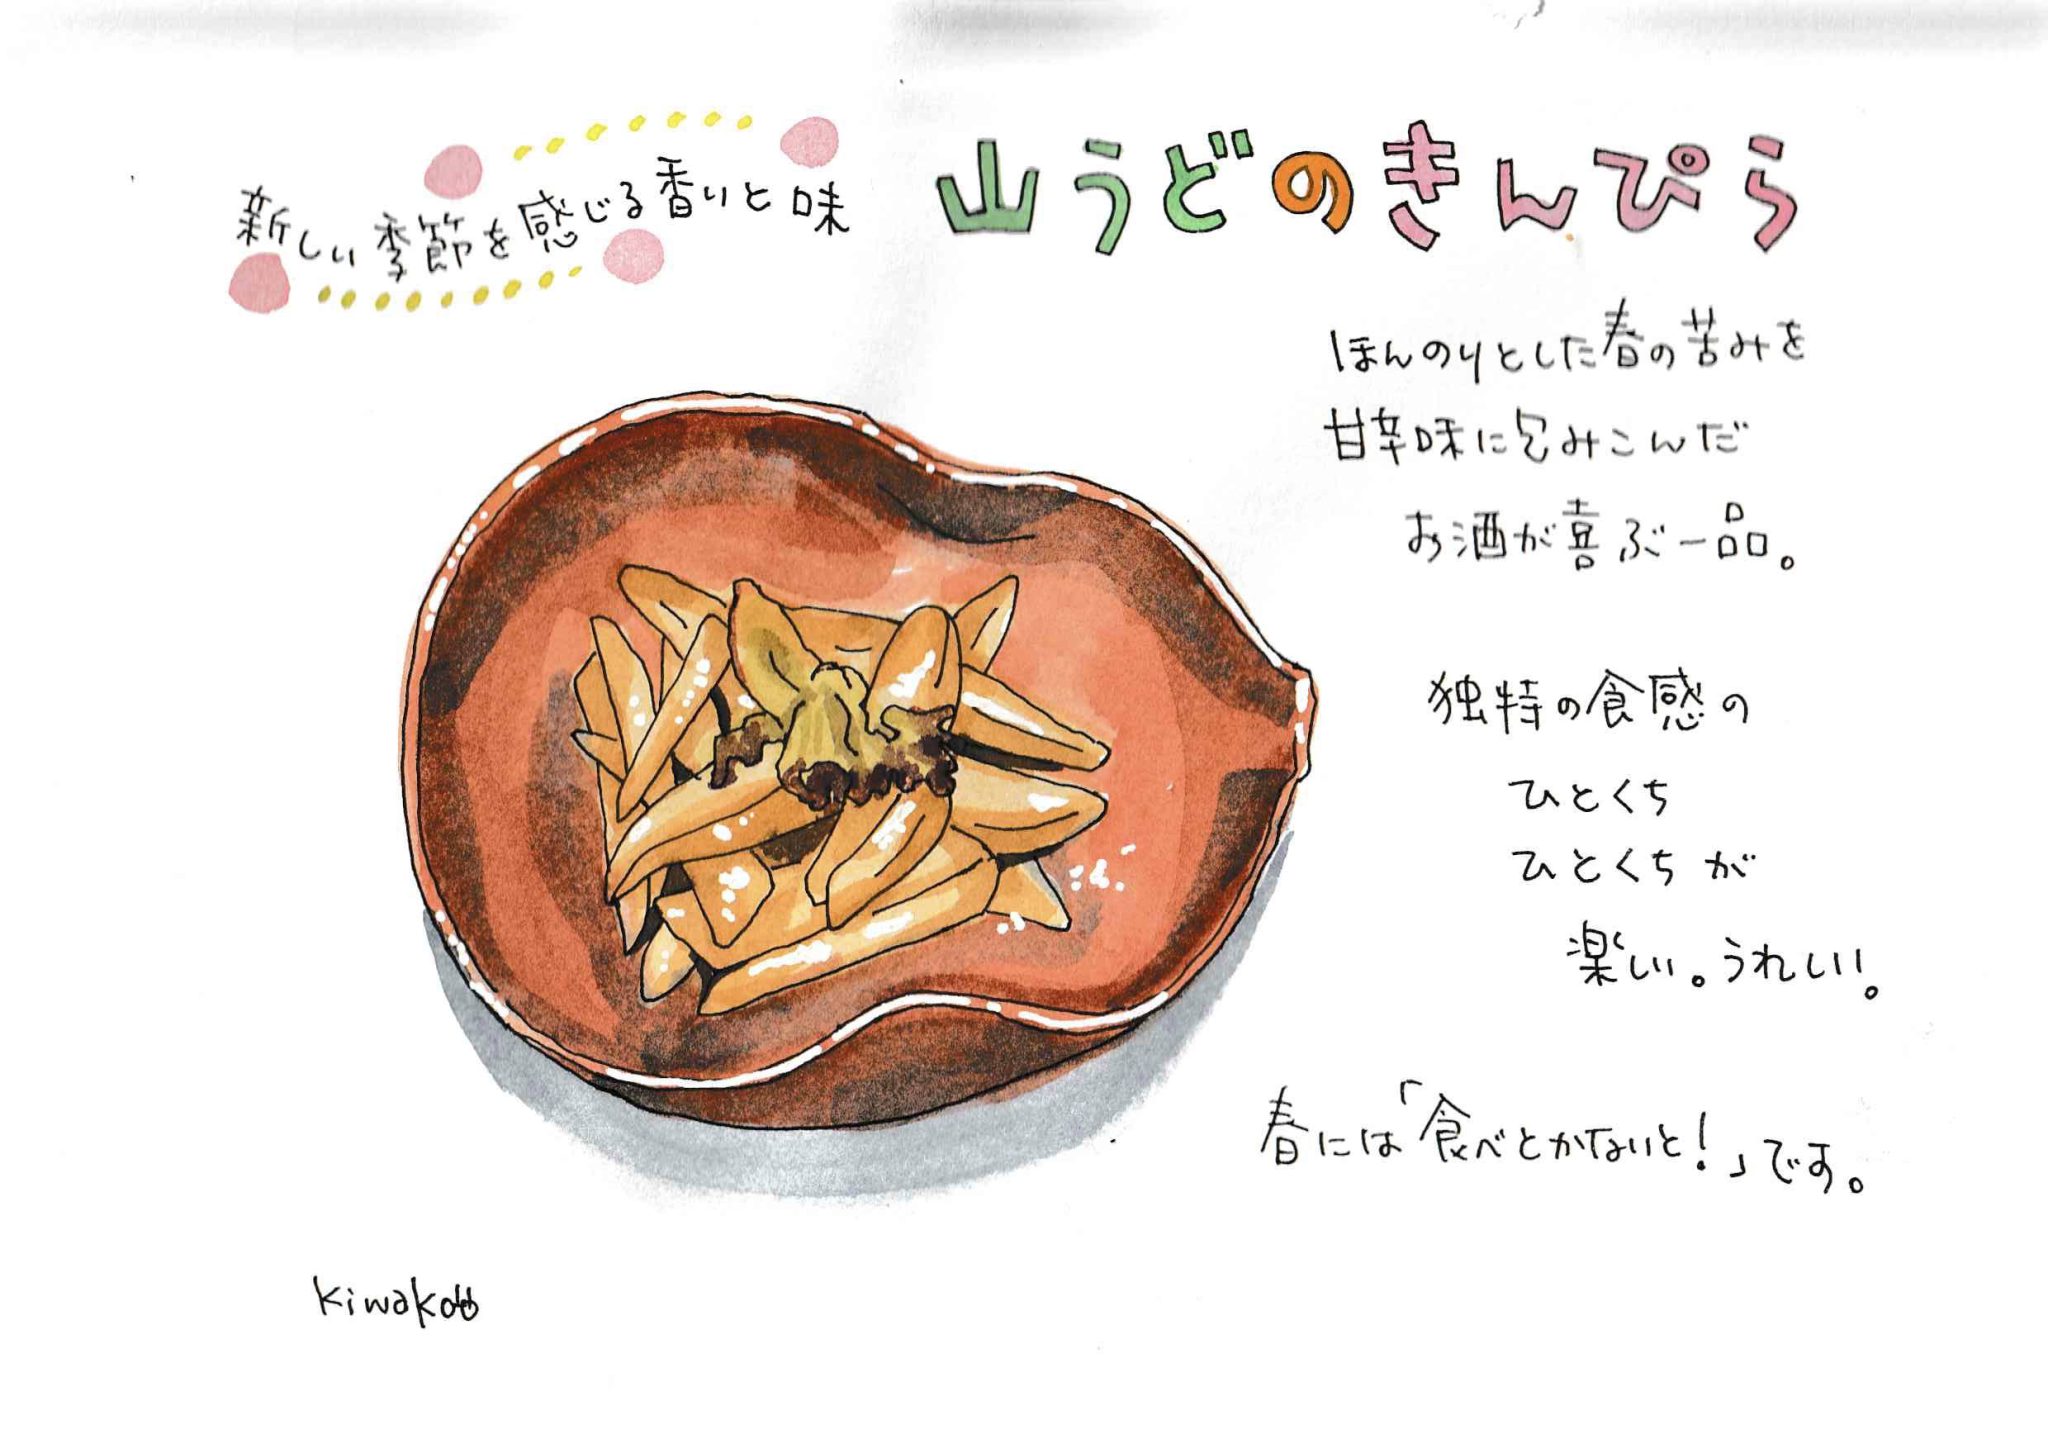 新しい季節を感じる香りと味
山うどのきんぴら
ほんのりとした春の苦みを
甘辛味に包みこんだ
お酒が喜ぶ一品。
独特の食感の
ひとくち
ひとくちが
楽しい。うれしい。
春には「食べとかないと!」です。
kiwako